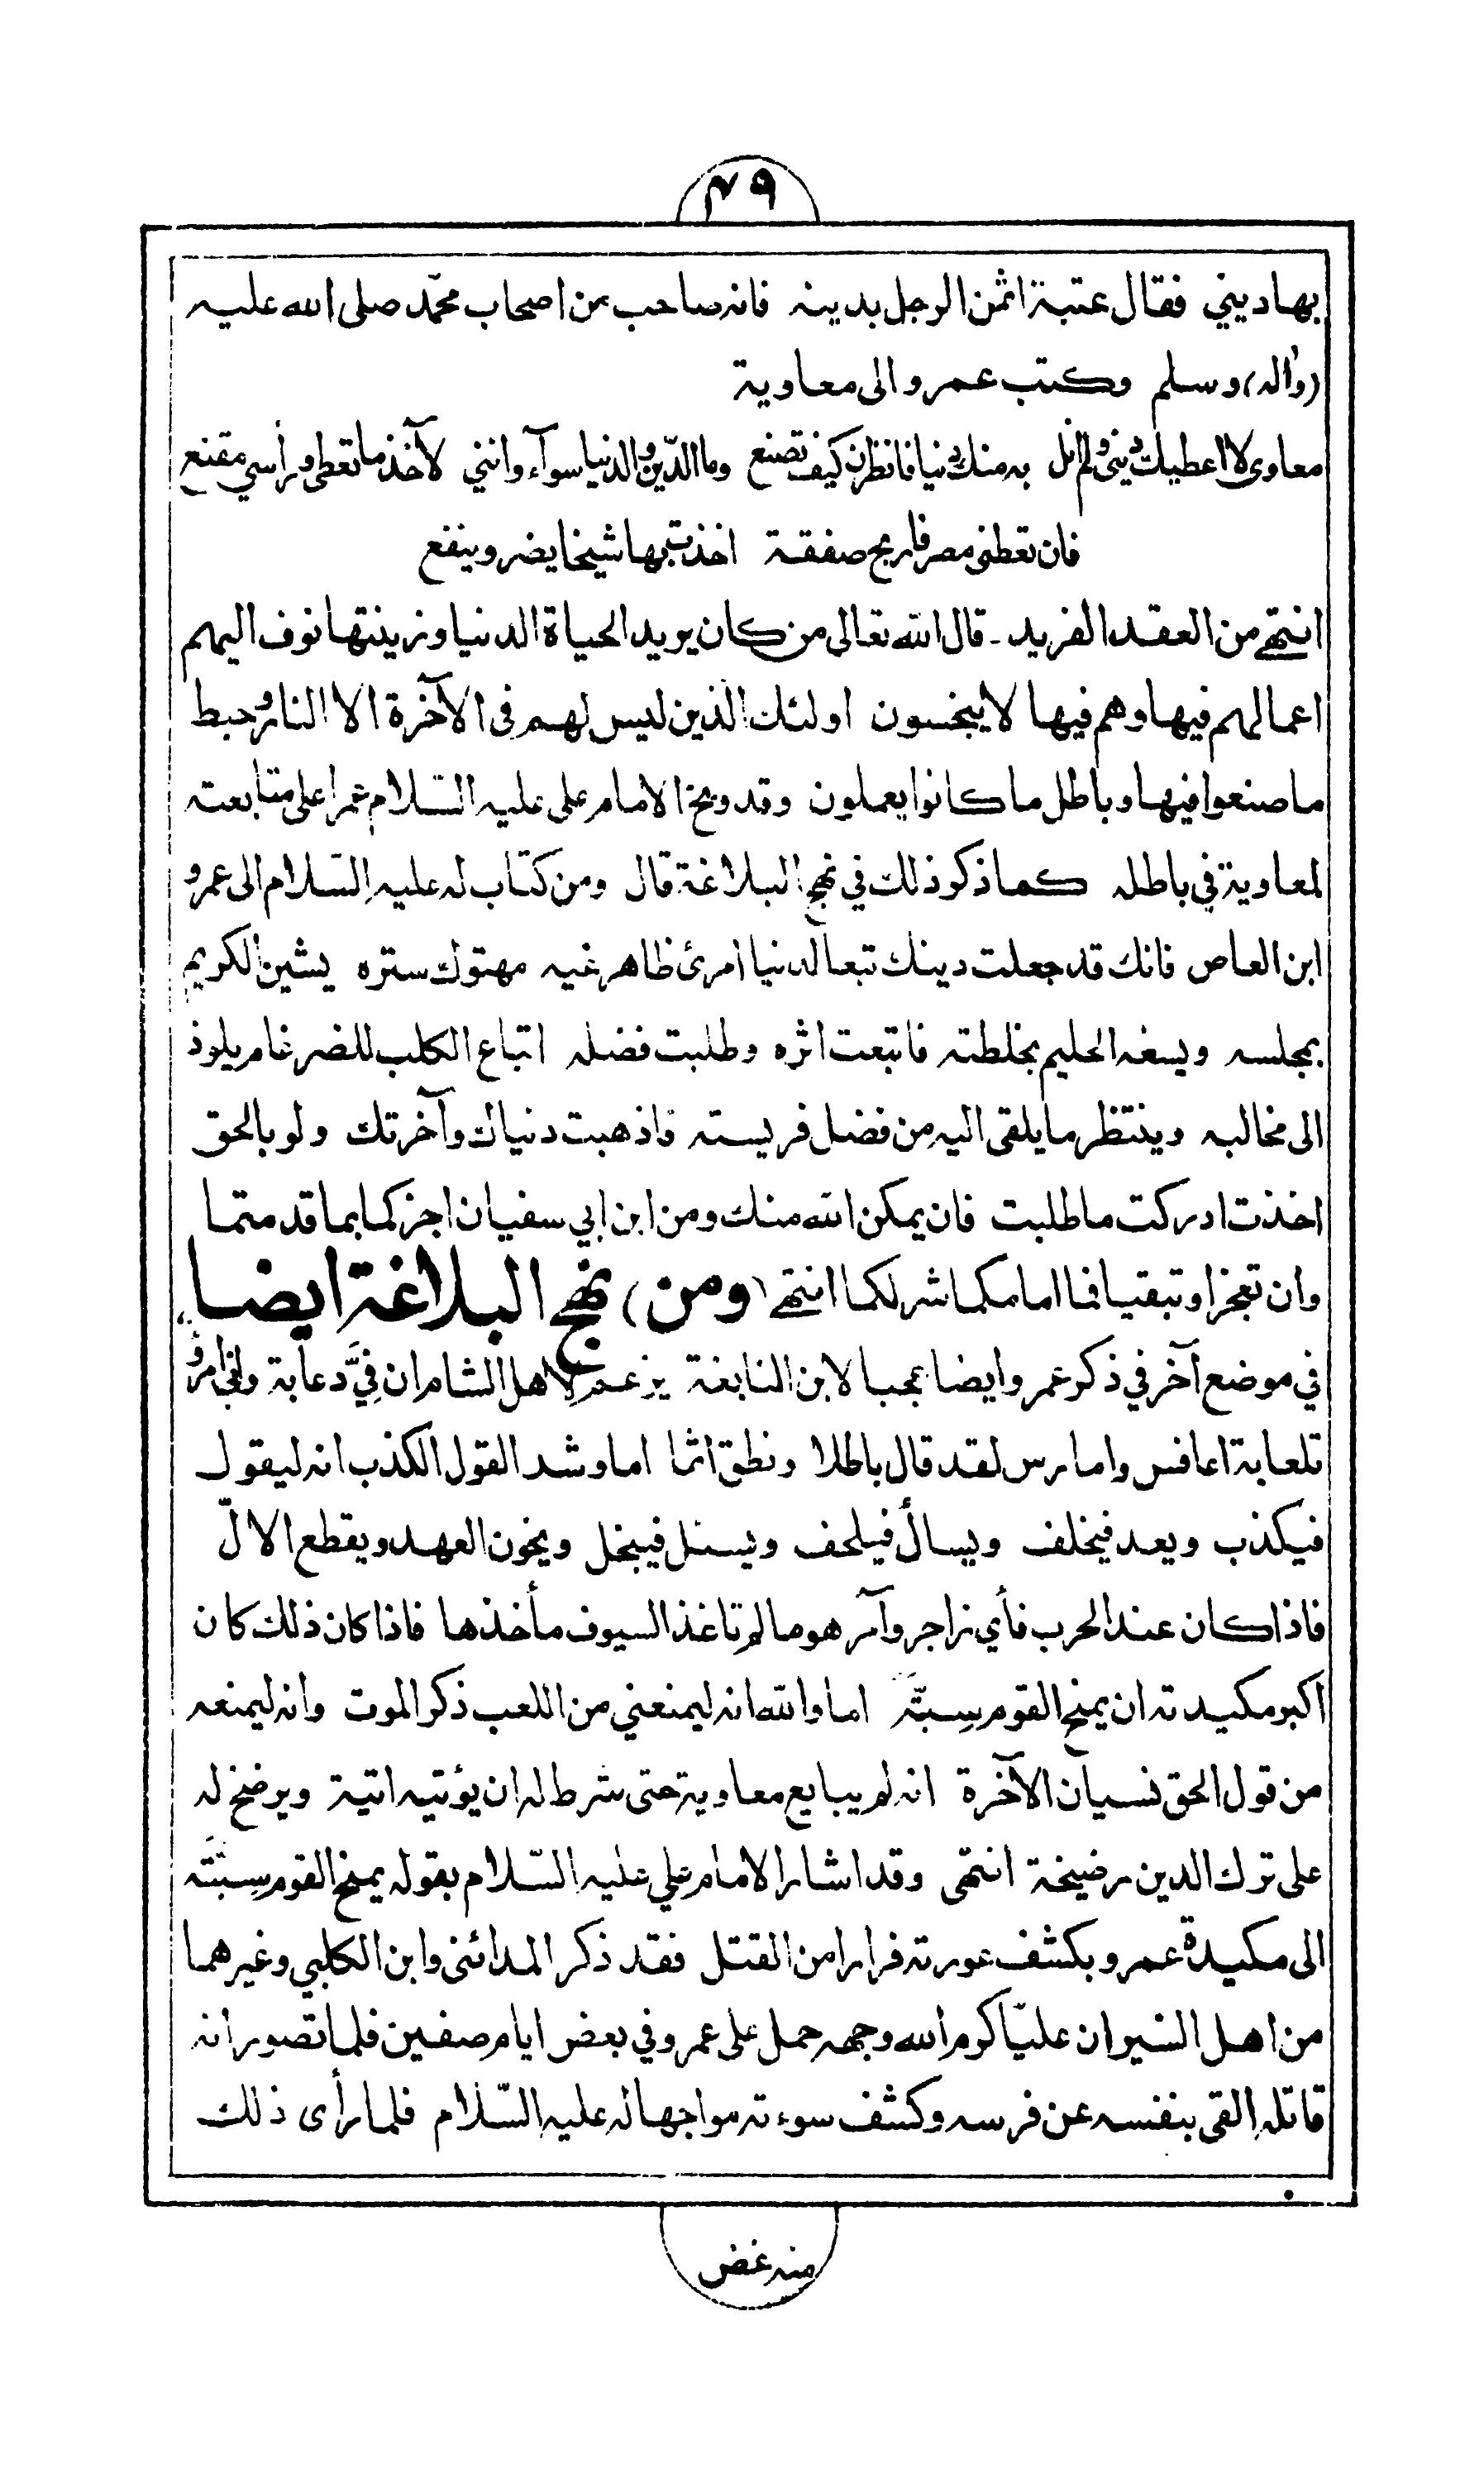 ٤٩
بها ديني فقال عتبة اثمن الرجل بدينه فانه صاحب من اصحاب محمّد صلى الله عليه
(وآله) وسلم وكتب عمرو الى معاوية
معاوى لا اعطيك ديني ولم انل به منك دنيا فانظرن كيف تصنع وما الدّين والدنيا سوآء وانني لآخذ ما تعطى ورأسي مقنع
فان تعطنى مصر فاربح صفقة اخذت بها شيخا يضر وينفع
انتهى من العقد الفريد ـ قال الله تعالى من كان يريد الحياة الدنيا وزينتها نوف اليهم
اعمالهم فيها وهم فيها لا يبخسون اولئك الذين ليس لهم فى الآخرة الا النار وحبط
ما صنعوا فيها وباطل ما كانوا يعملون وقد وبخ الامام على عليه السّلام عمرا على متابعته
لمعاوية في باطله كما ذكر ذلك في نهج البلاغة قال ومن كتاب له عليه السّلام الى عمرو
ابن العاص فانك قد جعلت دينك تبعا لدنيا امرئ ظاهر غيه مهتوك ستره يشين الكريم
بمجلسه ويسفه الحليم بخلطته فاتبعت اثره وطلبت فضله اتباع الكلب للضرغام يلوذ
الى مخالبه وينتظر ما يلقى اليه من فضل فريسته فاذهبت دنياك وآخرتك ولو بالحق
اخذت ادركت ما طلبت فان يمكن الله منك ومن ابن ابي سفيان اجزكما بما قدمتما
وان تعجزا وتبقيا فما امامكما شر لكما انتهى (ومن) نهج البلاغة ايضا
في موضع آخر في ذكر عمرو ايضا عجبا لابن النابغة يزعم لاهل الشام ان فِيَّ دعابة واني امرؤ
تلعابة اعافس وامارس لقد قال باطلا ونطق اثما اما وشد القول الكذب انه ليقول
فيكذب ويعد فيخلف ويسأل فيلحف ويسئل فيبخل ويخون العهد ويقطع الالّ
فاذا كان عند الحرب فأي زاجر وآمر هو ما لم تاخذ السيوف مأخذها فاذا كان ذلك كان
اكبر مكيدته ان يمنح القوم سِبتَّه اما والله انه ليمنعني من اللعب ذكر الموت وانه ليمنعه
من قول الحق نسيان الآخرة انه لم يبايع معاوية حتى شرط له ان يؤتيه اتية ويرضخ له
على ترك الدين رضيخة انتهى وقد اشار الامام علي عليه السّلام بقوله يمنح القوم سِبتَّه
الى مكيدة عمرو بكشف عورته فرارا من القتل فقد ذكر المدائنى وابن الكلبي وغيرهما
من اهل السير ان عليّا كرم الله وجهه حمل على عمرو في بعض ايام صفين فلما تصور انه
قاتله القى بنفسه عن فرسه وكشف سوءته مواجها له عليه السّلام فلما رأى ذلك
منه غض